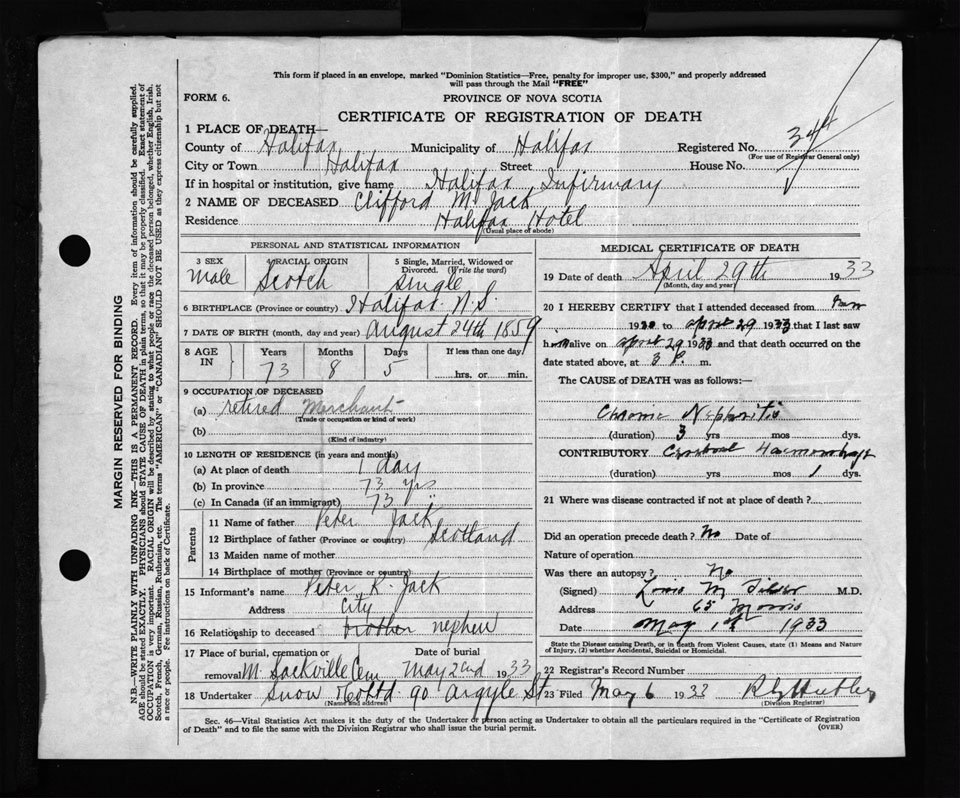 This form if placed in an envelope, marked "Dominion Statistics—Free, penalty for improper use, $300," and properly addressed
will pass through the Mail "FREE"
FORM 6.
PROVINCE OF NOVA SCOTIA
CERTIFICATE OF REGISTRATION OF DEATH
1 PLACE OF DEATH—
County of Halifax Municipality of Halifax Registered No.
(For use of Registrar General only)
City or Town Halifax Street House No.
If in hospital or institution, give name Halifax Infirmary
2 NAME OF DECEASED Clifford M. Jack
Residence Halifax Hotel
(Usual place of abode)
PERSONAL AND STATISTICAL INFORMATION
3 SEX 4 RACIAL ORIGIN 5 Single, Married, Widowed or
Divorced. (Write the word)
Male Scotch Single
6 BIRTHPLACE (Province or country) Halifax N.S.
7 DATE OF BIRTH (month, day and year) August 24th 1859
8 AGE IN Years Months Days If less than one day
73 8 5 hrs. or min.
9 OCCUPATION OF DECEASED
(a) retired Merchant
(Trade or occupation or kind of work)
(b)
(Kind of industry)
10 LENGTH OF RESIDENCE (in years and months)
(a) At place of death 1 day
(b) In province 73 yrs
(c) In Canada (if an immigrant) 73 "
Parents
11 Name of father Peter Jack
12 Birthplace of father (Province or country) Scotland
13 Maiden name of mother
14 Birthplace of mother (Province or country)
15 Informant's name Peter R. Jack
Address City
16 Relationship to deceased brother nephew
17 Place of burial, cremation or Date of burial
removal M. Sackville Cem May 2nd 1933
18 Undertaker Snow & Co Ltd. 90 Argyle St
(Name and address)
MEDICAL CERTIFICATE OF DEATH
19 Date of death April 29th 1933
(Month, day and year)
20 I HEREBY CERTIFY that I attended deceased from Jan
1930 to April 29 1933 that I last saw
him alive on April 29 1933 and that death occurred on the
date stated above, at 3 P. m.
The CAUSE of DEATH was as follows:—
Chronic Nephritis
(duration) 3 yrs mos dys.
CONTRIBUTORY Cerebral Haemorrhage
(duration) yrs mos 1 dys.
21 Where was disease contracted if not at place of death?
Did an operation precede death? No Date of
Nature of operation
Was there an autopsy? No
(Signed) Louis M. M.D.
Address 65 Morris
Date May 1st 1933
State the Disease causing Death, or in death from Violent Causes, state (1) Means and Nature
of Injury, (2) whether Accidental, Suicidal or Homicidal.
22 Registrar's Record Number
23 Filed May 6 1933
(Division Registrar)
Sec. 46—Vital Statistics Act makes it the duty of the Undertaker or person acting as Undertaker to obtain all the particulars required in the "Certificate of Registration
of Death" and to file the same with the Division Registrar who shall issue the burial permit. (OVER)
MARGIN RESERVED FOR BINDING
N.B.—WRITE PLAINLY WITH UNFADING INK—THIS IS A PERMANENT RECORD. Every item of information should be carefully supplied.
AGE should be stated EXACTLY. PHYSICIANS should STATE CAUSE OF DEATH in plain terms, so that it may be properly classified. Exact statement of
OCCUPATION is very important. RACIAL ORIGIN will be described by stating to what people or race the deceased person belonged, whether English, Irish,
Scotch, French, German, Russian, Ruthenian, etc. The terms "AMERICAN" or "CANADIAN" SHOULD NOT BE USED as they express citizenship but not
a race or people. See instructions on back of Certificate.